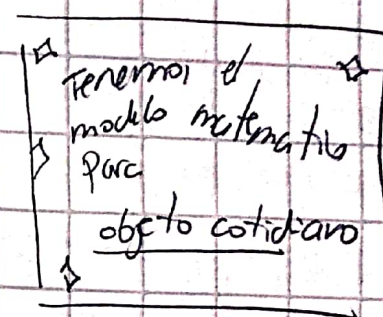 Tenemos el
modelo matematico
para
objeto cotidiano